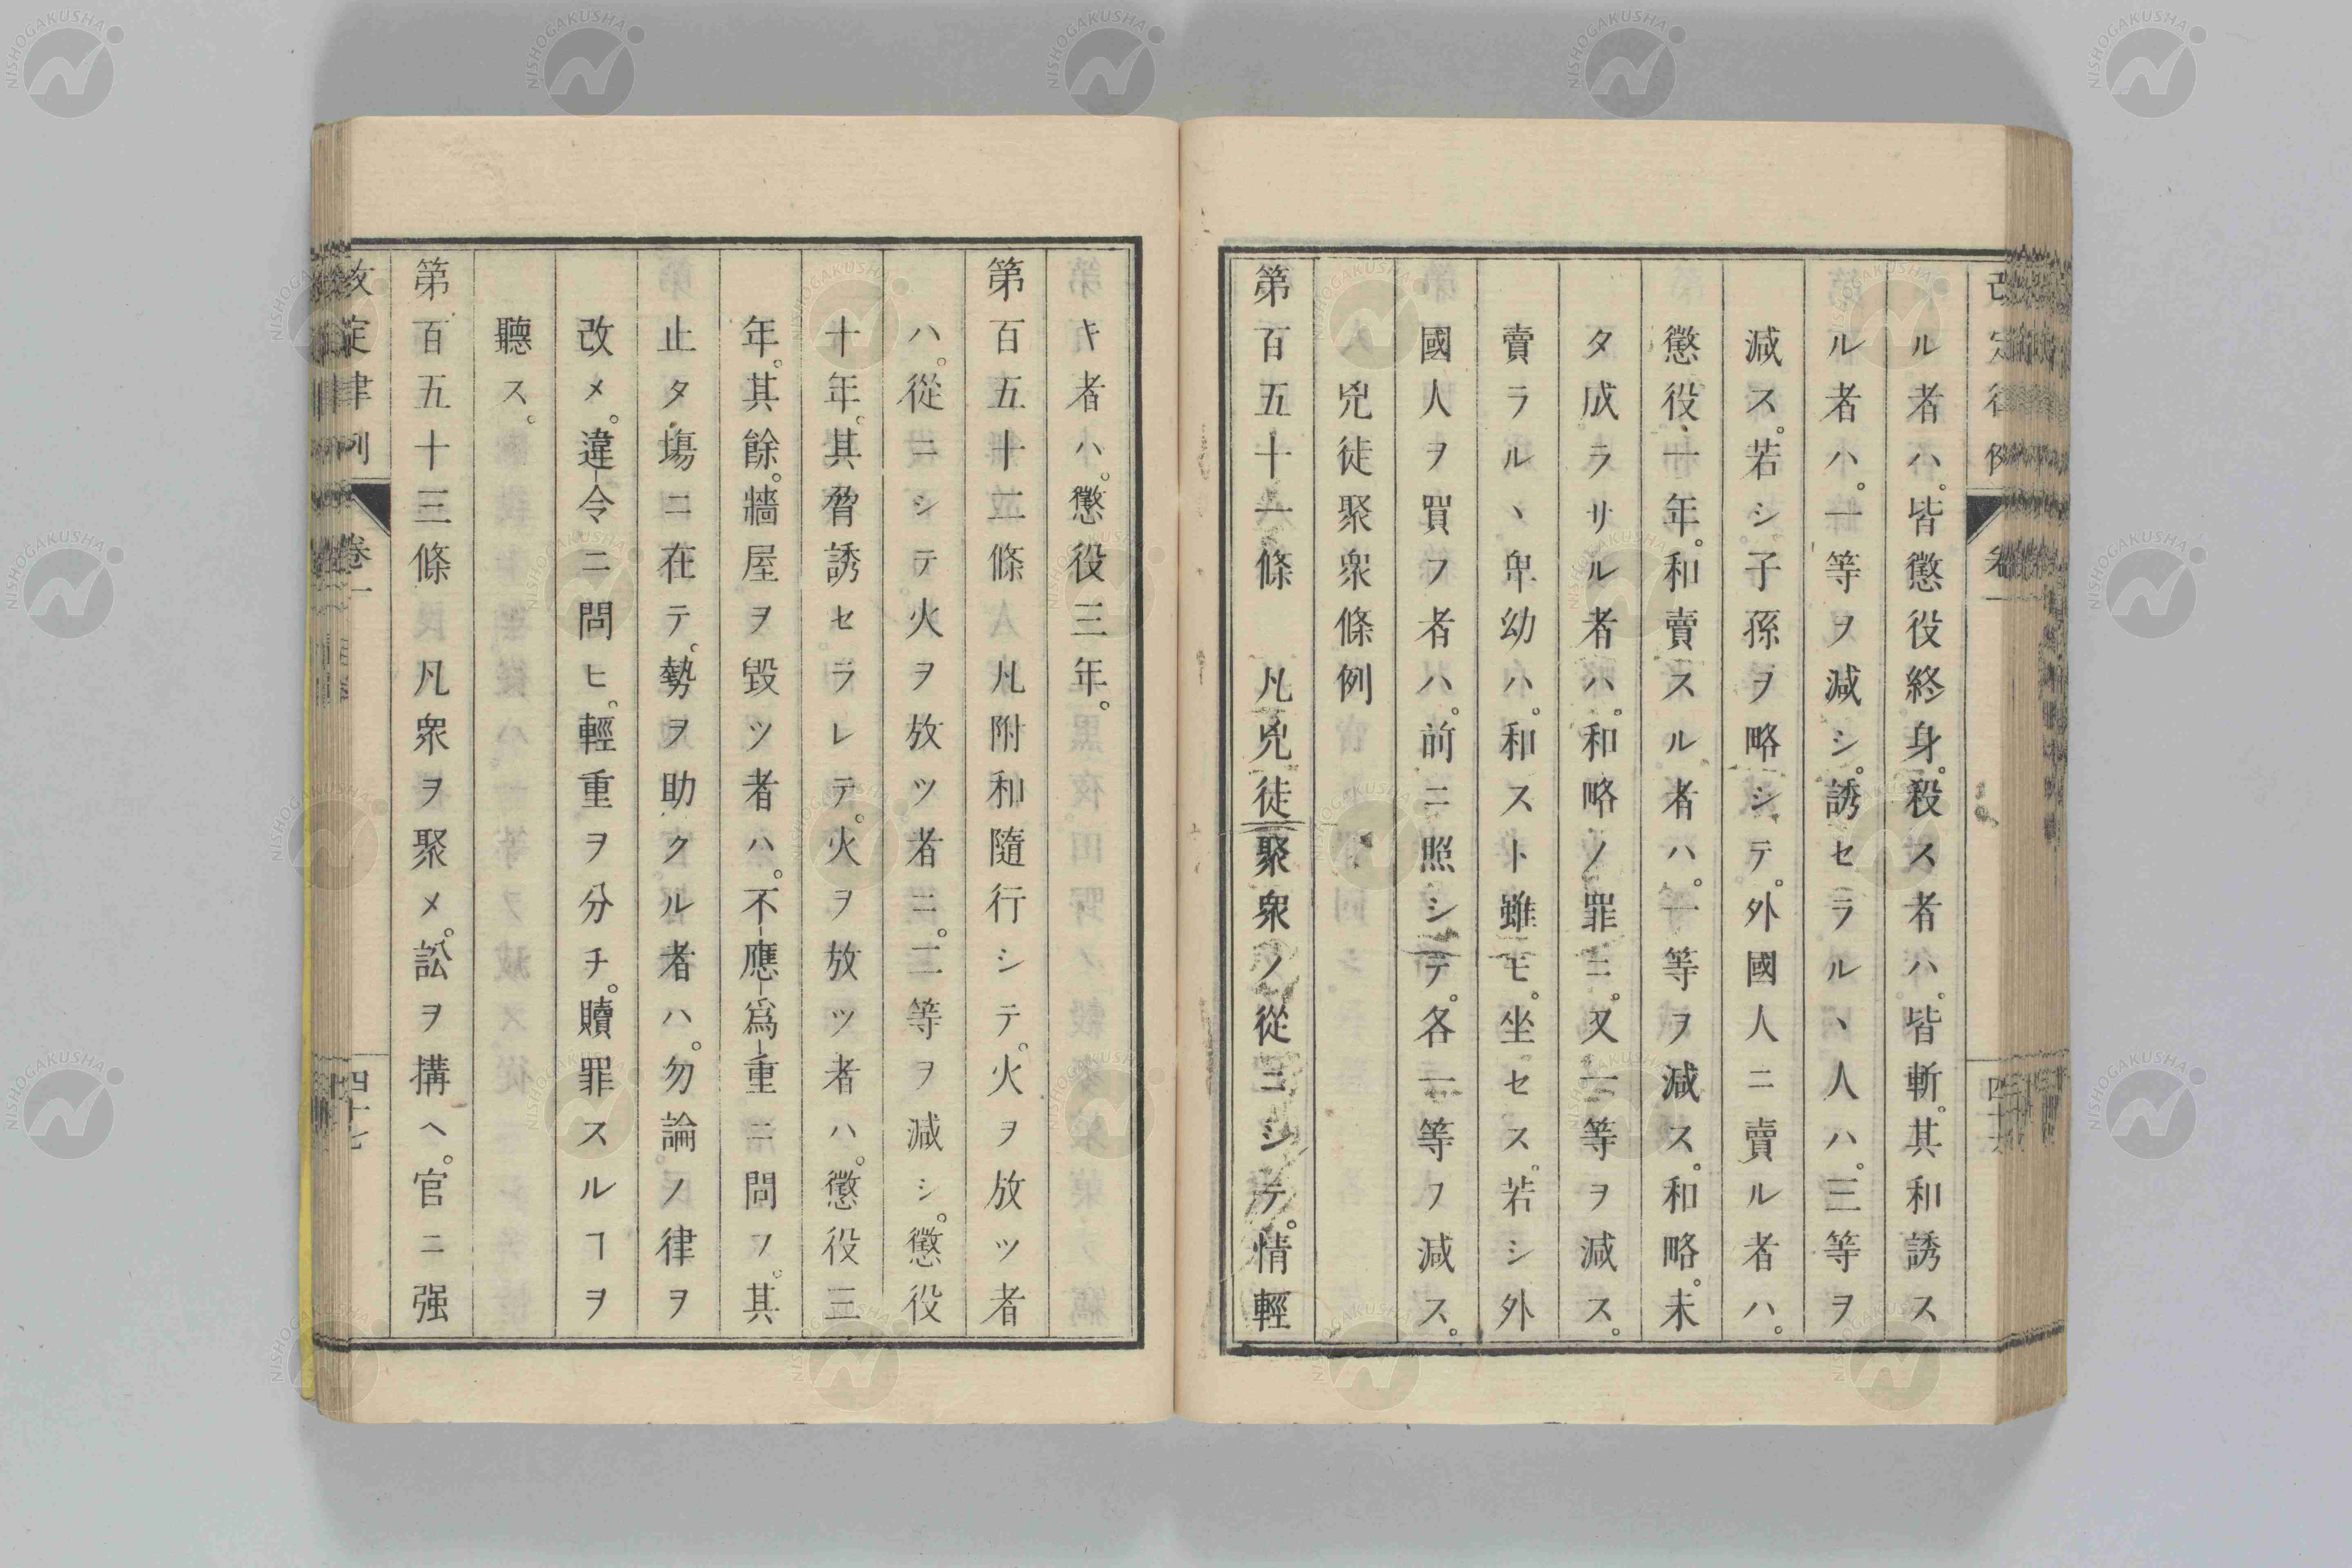 ル者ハ。皆懲役終身。殺ス者ハ。皆斬。其和誘ス
ル者ハ。一等ヲ減シ。誘セラルヽ人ハ。三等ヲ
減ス。若シ子孫ヲ略シテ。外國人ニ賣ル者ハ。
懲役十年。和賣スル者ハ。一等ヲ減ス。和略。未
タ成ラサル者ハ。和略ノ罪ニ。又一等ヲ減ス。
賣ラルヽ卑幼ハ。和スト雖モ。坐セス。若シ外
國人ヲ買フ者ハ。前ニ照シテ。各一等フ減ス。
兇徒聚衆條例
第百五十一條 凡兇徒聚衆ノ從ニシテ。情輕
キ者ハ。懲役三年。
第百五十二條 凡附和隨行シテ。火ヲ放ツ者
ハ。從ニシテ火ヲ放ツ者ニ。二等ヲ減シ。懲役
十年。其脅誘セラレテ。火ヲ放ツ者ハ。懲役三
年。其餘。牆屋ヲ毀ツ者ハ。不應爲重ニ問フ。其
止タ塲ニ在テ。勢ヲ助クル者ハ。勿論ノ律ヲ
改メ。違令ニ問ヒ。輕重ヲ分チ。贖罪スルヿヲ
聽ス。
第百五十三條 凡衆ヲ聚メ。訟ヲ搆ヘ。官ニ强
定律例
卷一
四十七
NISHOGAKUSHA